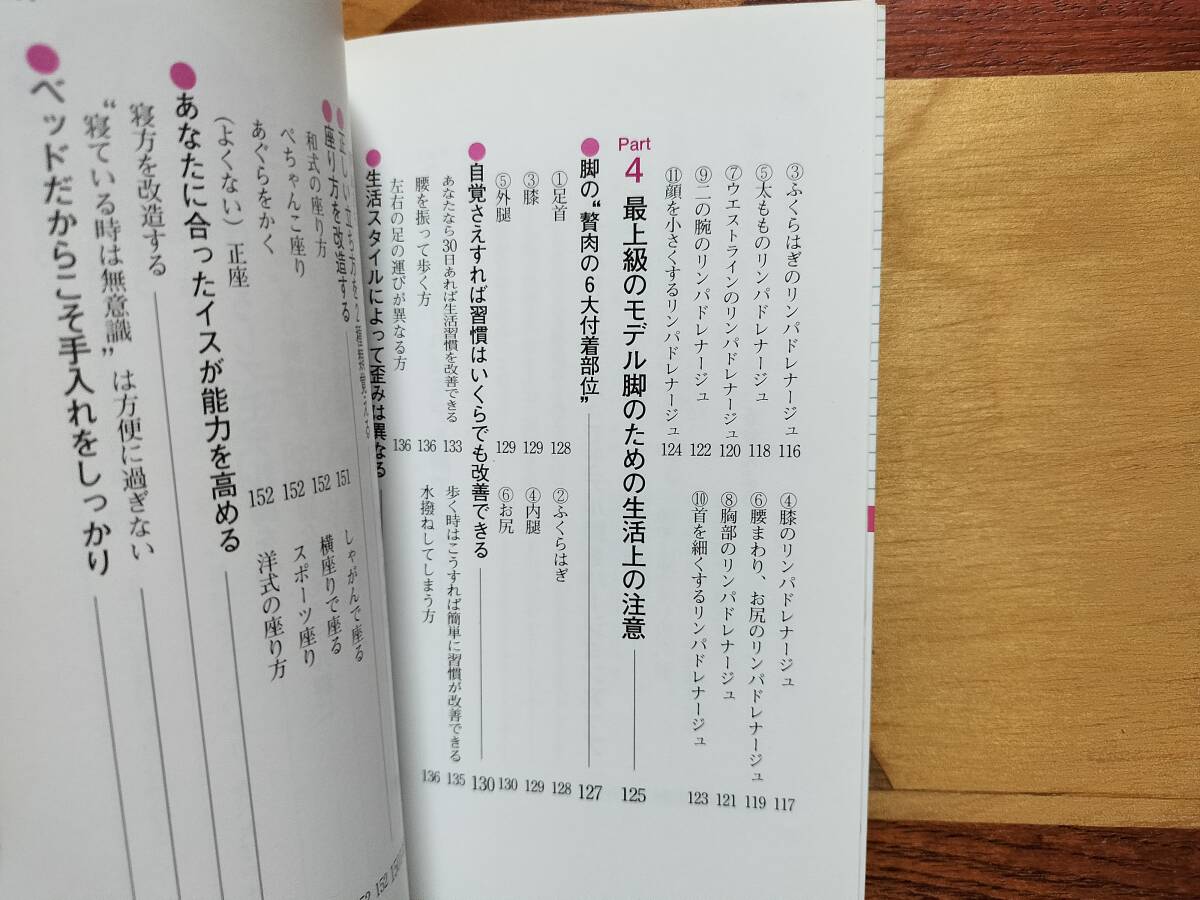 ③ふくらはぎのリンパドレナージュ 116
④膝のリンパドレナージュ 117
⑤太もものリンパドレナージュ 118
⑥腰まわり、お尻のリンパドレナージュ 119
⑦ウエストラインのリンパドレナージュ 120
⑧胸部のリンパドレナージュ 121
⑨二の腕のリンパドレナージュ 122
⑩首を細くするリンパドレナージュ 123
⑪顔を小さくするリンパドレナージュ 124
Part 4 最上級のモデル脚のための生活上の注意 125
●脚の“贅肉の6大付着部位” 127
①足首 128
②ふくらはぎ 128
③膝 129
④内腿 129
⑤外腿 129
⑥お尻 130
●自覚さえすれば習慣はいくらでも改善できる 130
あなたなら30日あれば生活習慣を改善できる 133
歩く時はこうすれば簡単に習慣が改善できる 135
腰を振って歩く方 136
水撥ねしてしまう方 136
左右の足の運びが異なる方 136
●生活スタイルによって歪みは異なる
●正しい立ち方を2種類覚える
●座り方を改造する
和式の座り方 151
しゃがんで座る
ぺちゃんこ座り 152
横座りで座る
あぐらをかく 152
スポーツ座り
（よくない）正座 152
洋式の座り方
●あなたに合ったイスが能力を高める
寝方を改造する
“寝ている時は無意識”は方便に過ぎない
●ベッドだからこそ手入れをしっかり